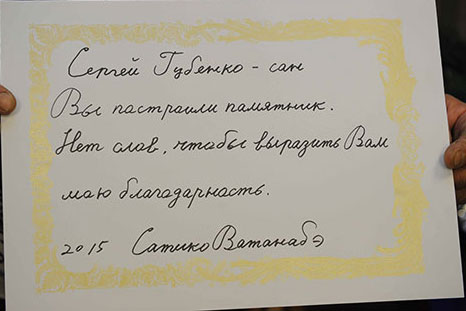 Сергей Губенко - сан
Вы построили памятник.
Нет слов, чтобы выразить Вам
мою благодарность.
2015 Сатико Ватанабэ